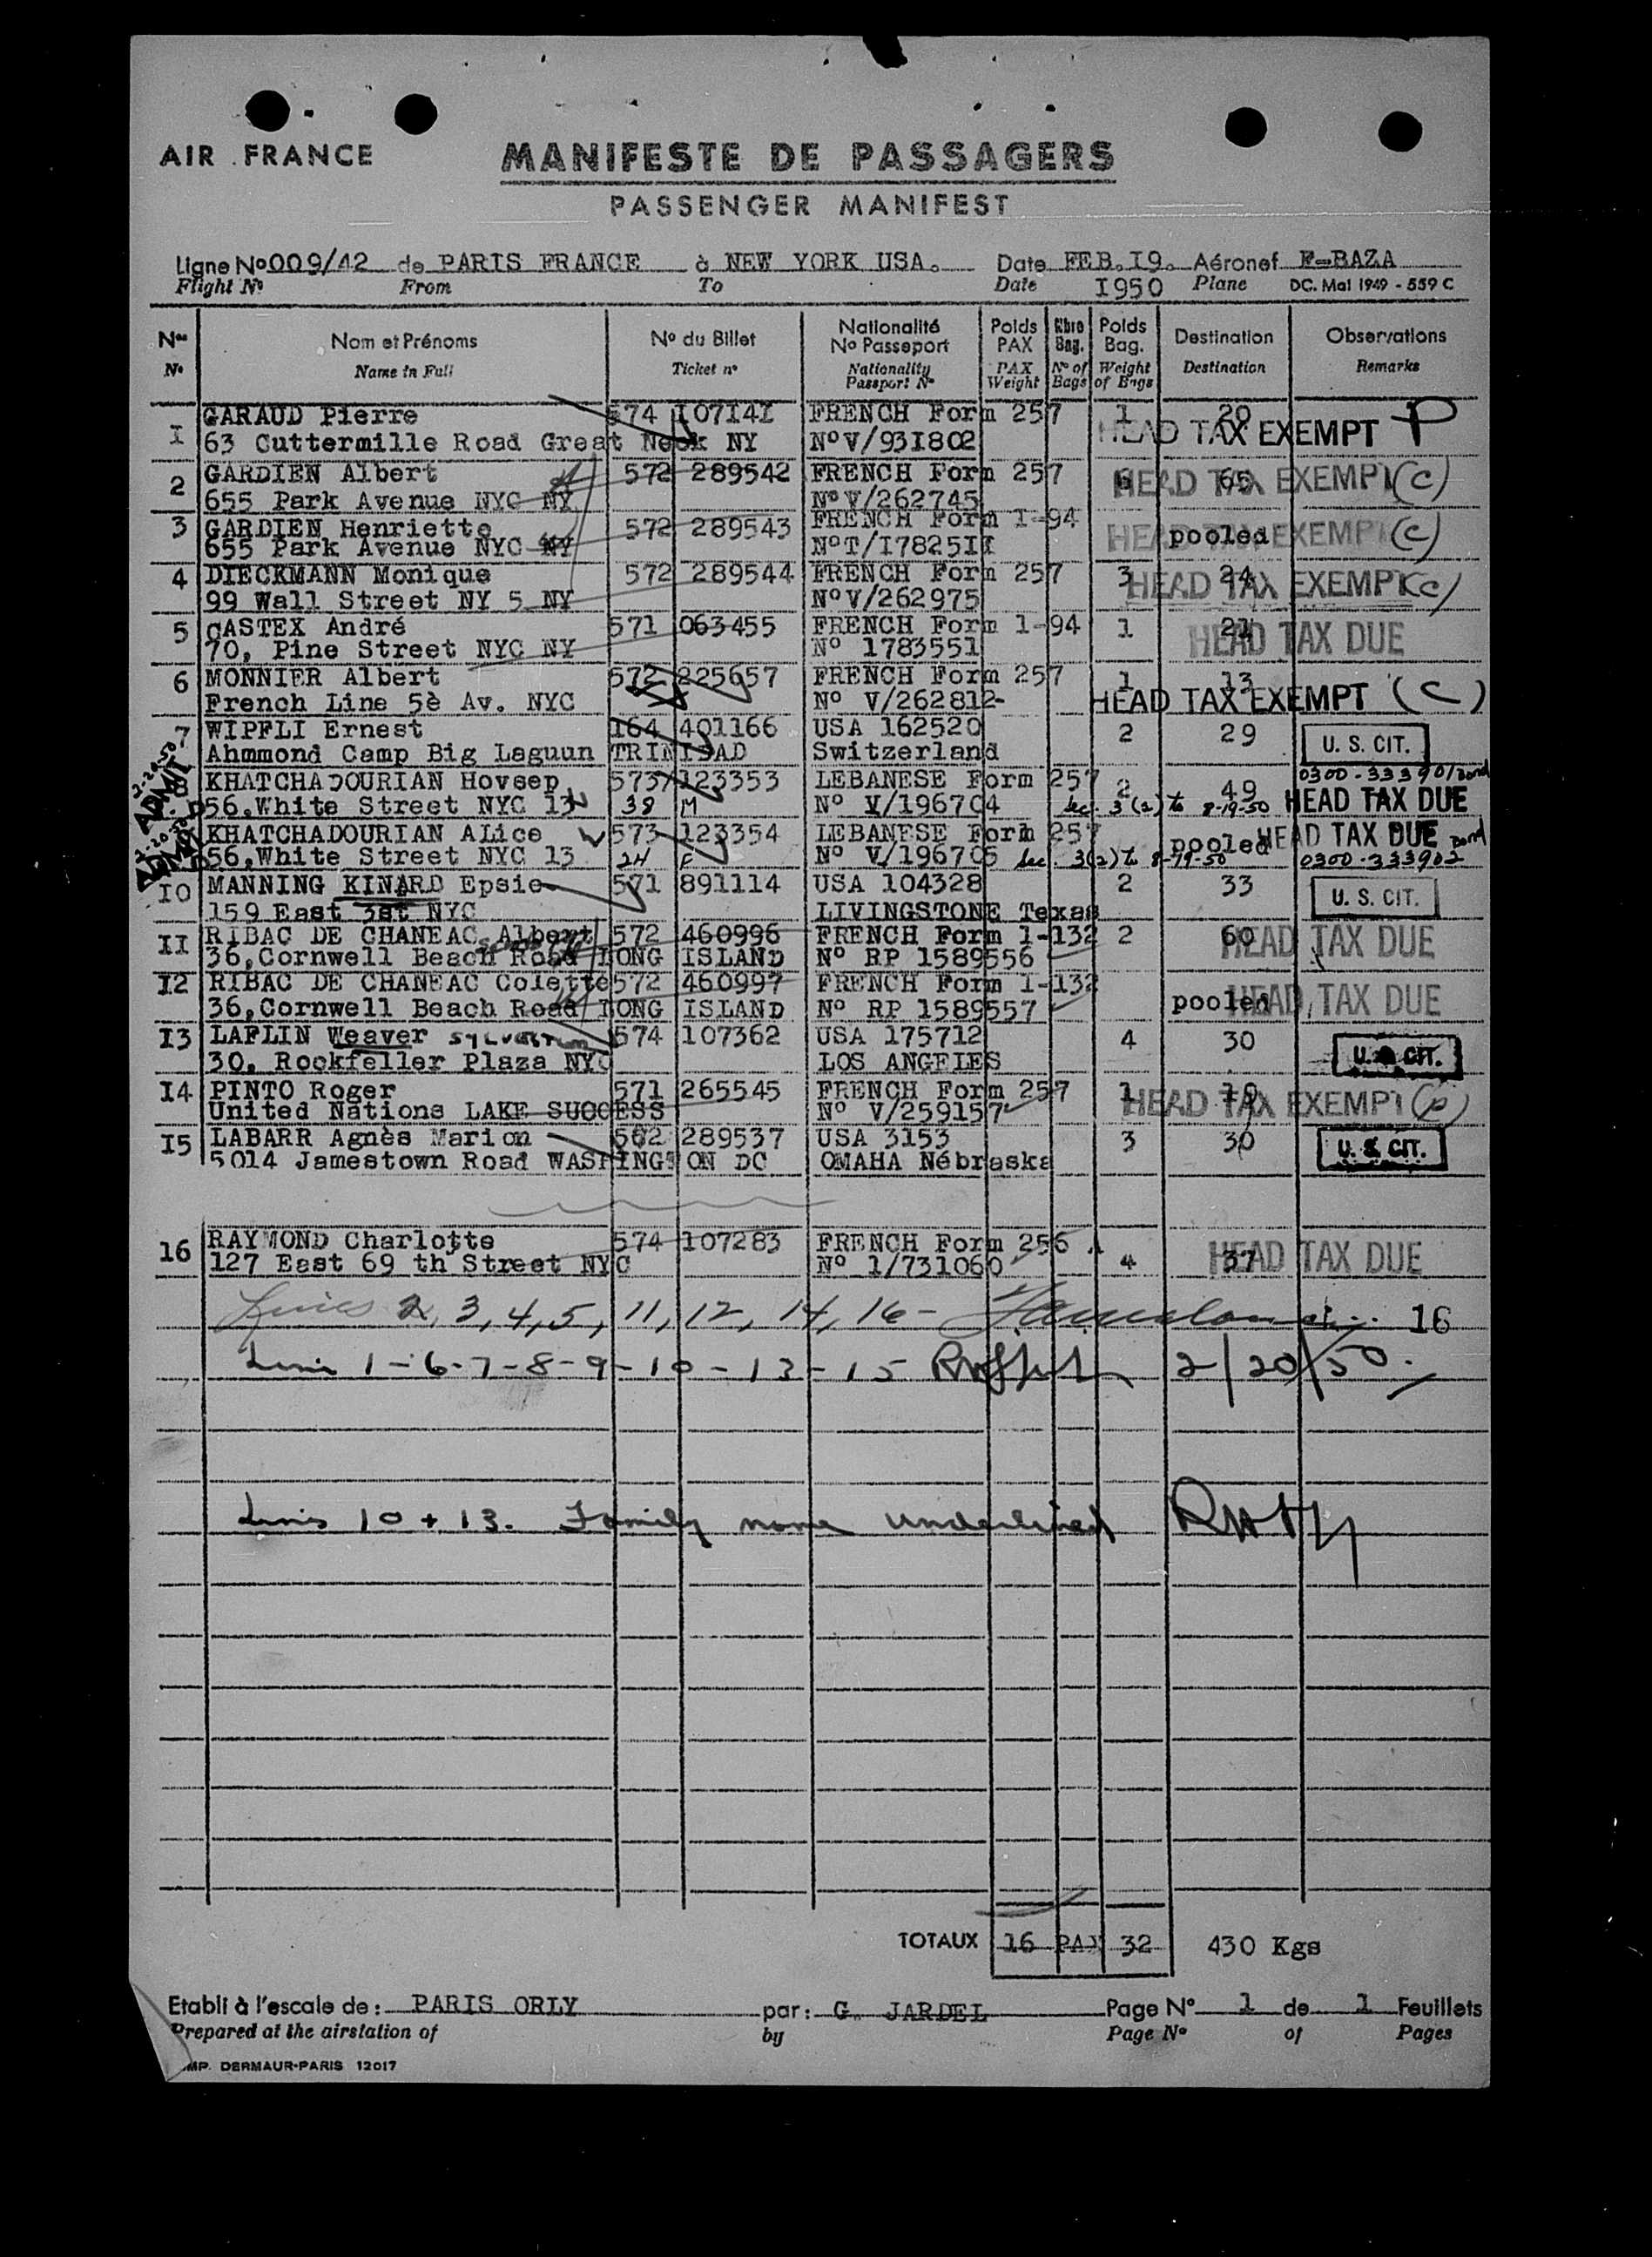 AIR FRANCE
MANIFESTE DE PASSAGERS
PASSENGER MANIFEST
Ligne No 009/42 de PARIS FRANCE à NEW YORK USA. Date FEB.I9. Aéronef F-BAZA
Flight No From To Date I950 Plane DC. Mal 1949 - 559 C
Nos Nom et Prénoms No du Billet Nationalité No Passeport Poids PAX Nbre Bag. Poids Bag. Destination Observations
No Name in Full Ticket no Nationality Passport No PAX Weight No of Bags Weight of Bags Destination Remarks
I GARAUD Pierre 574 I07I4I FRENCH Form 257 1 20
63 Cuttermille Road Great Neck NY NoV/93I802 HEAD TAX EXEMPT P
2 GARDIEN Albert 572 289542 FRENCH Form 257 6 65 HEAD TAX EXEMPT (c)
655 Park Avenue NYC NY NoV/262745
3 GARDIEN Henriette 572 289543 FRENCH Form 1-94 pooled HEAD TAX EXEMPT (c)
655 Park Avenue NYC NY NoT/I7825II
4 DIECKMANN Monique 572 289544 FRENCH Form 257 3 24 HEAD TAX EXEMPT (c)
99 Wall Street NY 5 NY NoV/262975
5 CASTEX André 571 063455 FRENCH Form 1-94 1 21 HEAD TAX DUE
70, Pine Street NYC NY No 1783551
6 MONNIER Albert 572 225657 FRENCH Form 257 1 13
French Line 5è Av. NYC No V/262812 HEAD TAX EXEMPT (C)
7 WIPFLI Ernest 164 401166 USA 162520 2 29 U. S. CIT.
Ahmmond Camp Big Laguun TRINIDAD Switzerland
8 KHATCHADOURIAN Hovsep 573 123353 LEBANESE Form 257 2 49 0300-333901 Bond
56,White Street NYC 13 38 M No V/196704 Sec. 3(2) to 8-19-50 HEAD TAX DUE
2-20-50 ADMIT
KHATCHADOURIAN Alice 573 123354 LEBANESE Form 257 pooled HEAD TAX DUE Bond
56,White Street NYC 13 24 F No V/196705 Sec 3(2) to 8-19-50 0300-333902
2-20-50 ADMIT
I0 MANNING KINARD Epsie 571 891114 USA 104328 2 33 U. S. CIT.
159 East 3st NYC LIVINGSTONE Texas
II RIBAC DE CHANEAC Albert 572 460996 FRENCH Form 1-132 2 60 HEAD TAX DUE
36,Cornwell Beach Road LONG ISLAND No RP 1589556
I2 RIBAC DE CHANEAC Colette 572 460997 FRENCH Form 1-132 pooled HEAD TAX DUE
36,Cornwell Beach Road LONG ISLAND No RP 1589557
I3 LAFLIN Weaver 574 107362 USA 175712 4 30 U. S. CIT.
30. Rockfeller Plaza NYC LOS ANGELES
I4 PINTO Roger 571 265545 FRENCH Form 257 1 HEAD TAX EXEMPT (p)
United Nations LAKE SUCCESS No V/259157
I5 LABARR Agnès Marion 562 289537 USA 3153 3 30 U. S. CIT.
5014 Jamestown Road WASHINGTON DC OMAHA Nébraska
16 RAYMOND Charlotte 574 107283 FRENCH Form 256 HEAD TAX DUE
127 East 69 th Street NYC No 1/731060 4 37
Lines 2, 3, 4, 5, 11, 12, 14, 16 - 16
Lines 1-6-7-8-9-10-13-15 2/20/50.
Lines 10 + 13. Family name underlined
TOTAUX 16 PAX 32 430 Kgs
Etabli à l'escale de: PARIS ORLY par: G. JARDEL Page No 1 de 1 Feuillets
Prepared at the airstation of by Page No of Pages
IMP. DERMAUR-PARIS 12017